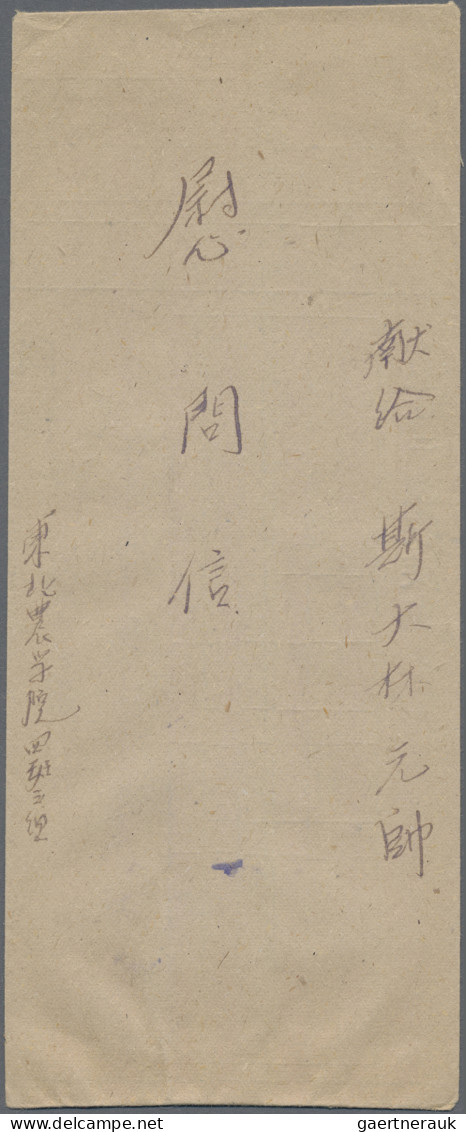 献给 斯大林 元帥
慰問信
東北農学院四班三组
gaertnerauk